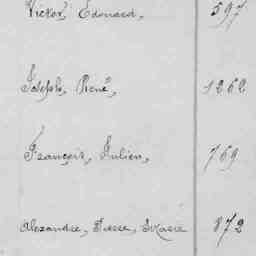 Victor Edouard, 597
Joseph, René, 1262
François, Julien, 769
Alexandre, Pierre, Marie 872